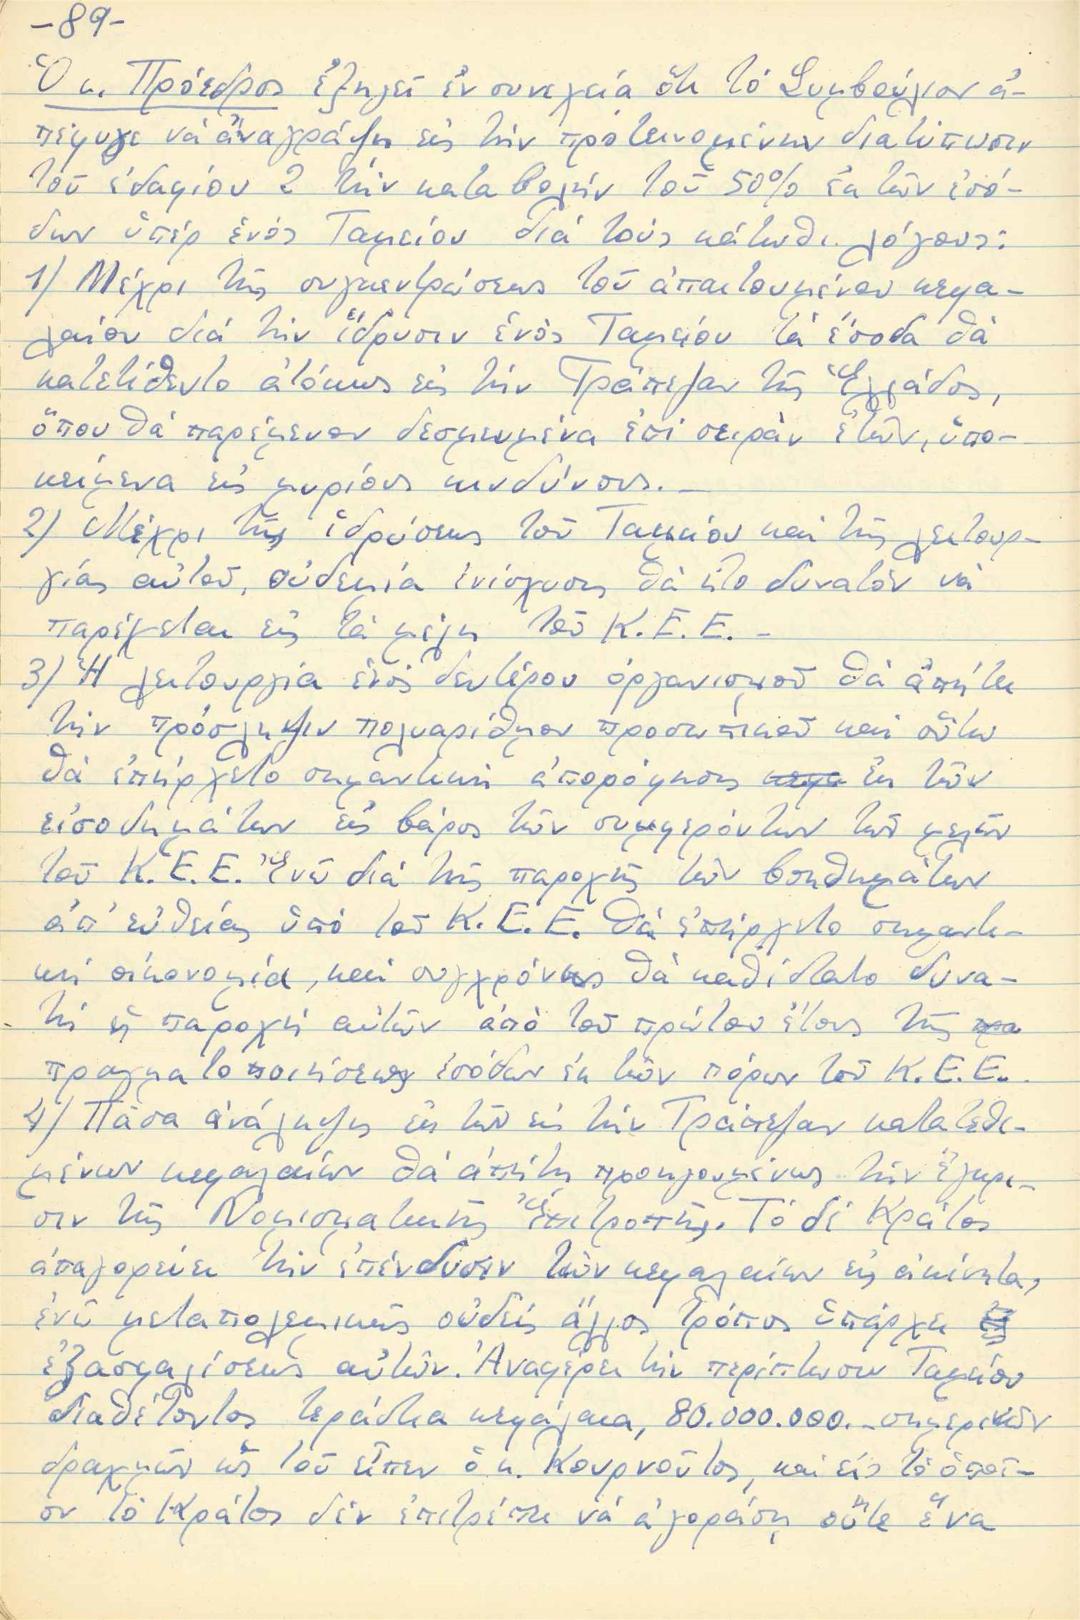 -89-
Ὁ κ. Πρόεδρος ἐξηγεῖ ἐν συνεχείᾳ ὅτι τό Συμβούλιον ἀ-
πέφυγε νά ἀναγράψῃ εἰς τήν προτεινομένην διατύπωσιν
τοῦ ἐδαφίου 2 τήν καταβολήν τοῦ 50% ἐκ τῶν ἐσό-
δων ὑπέρ ἑνός Ταμείου διά τούς κάτωθι λόγους:
1) Μέχρι τῆς συγκεντρώσεως τοῦ ἀπαιτουμένου κεφα-
λαίου διά τήν ἵδρυσιν ἑνός Ταμείου τά ἔσοδα θά
κατετίθεντο ἀτόκως εἰς τήν Τράπεζαν τῆς Ἑλλάδος,
ὅπου θά παρέμενον δεσμευμένα ἐπί σειράν ἐτῶν, ὑπο-
κείμενα εἰς μυρίους κινδύνους.-
2) Μέχρι τῆς ἱδρύσεως τοῦ Ταμείου καί τῆς λειτουρ-
γίας αὐτοῦ, οὐδεμία ἐνίσχυσις θά ἦτο δυνατόν νά
παρέχεται εἰς τά μέλη τοῦ Κ.Ε.Ε.-
3) Ἡ λειτουργία ἑνός δευτέρου ὀργανισμοῦ θά ἀπῄτει
τήν πρόσληψιν πολυαρίθμου προσωπικοῦ καί οὕτω
θά ἐπήρχετο σημαντική ἀπορρόφησις ἐκ τῶν
εἰσοδημάτων εἰς βάρος τῶν συμφερόντων τῶν μελῶν
τοῦ Κ.Ε.Ε. Ἐνῷ διά τῆς παροχῆς τῶν βοηθημάτων
ἀπ' εὐθείας ὑπό τοῦ Κ.Ε.Ε. θά ἐπήρχετο σημαντι-
κή οἰκονομία, καί συγχρόνως θά καθίστατο δυνα-
τή ἡ παροχή αὐτῶν ἀπό τοῦ πρώτου ἔτους τῆς
πραγματοποιήσεως ἐσόδων ἐκ τῶν πόρων τοῦ Κ.Ε.Ε.
4) Πᾶσα ἀνάληψις ἐκ τῶν εἰς τήν Τράπεζαν κατατεθει-
μένων κεφαλαίων θά ἀπῄτει προηγουμένως τήν ἔγκρι-
σιν τῆς Νομισματικῆς Ἐπιτροπῆς. Τό δέ Κράτος
ἀπαγορεύει τήν ἐπένδυσιν τῶν κεφαλαίων εἰς ἀκίνητα,
ἐνῷ μεταπολεμικῶς οὐδείς ἄλλος τρόπος ὑπάρχει
ἐξασφαλίσεως αὐτῶν. Ἀναφέρει τήν περίπτωσιν Ταμείου
διαθέτοντος τεράστια κεφάλαια, 80.000.000.- σημερινῶν
δραχμῶν ὡς τοῦ εἶπεν ὁ κ. Κουρνοῦτος, καί εἰς τό ὁποῖ-
ον τό Κράτος δέν ἐπιτρέπει νά ἀγοράσῃ οὔτε ἕνα